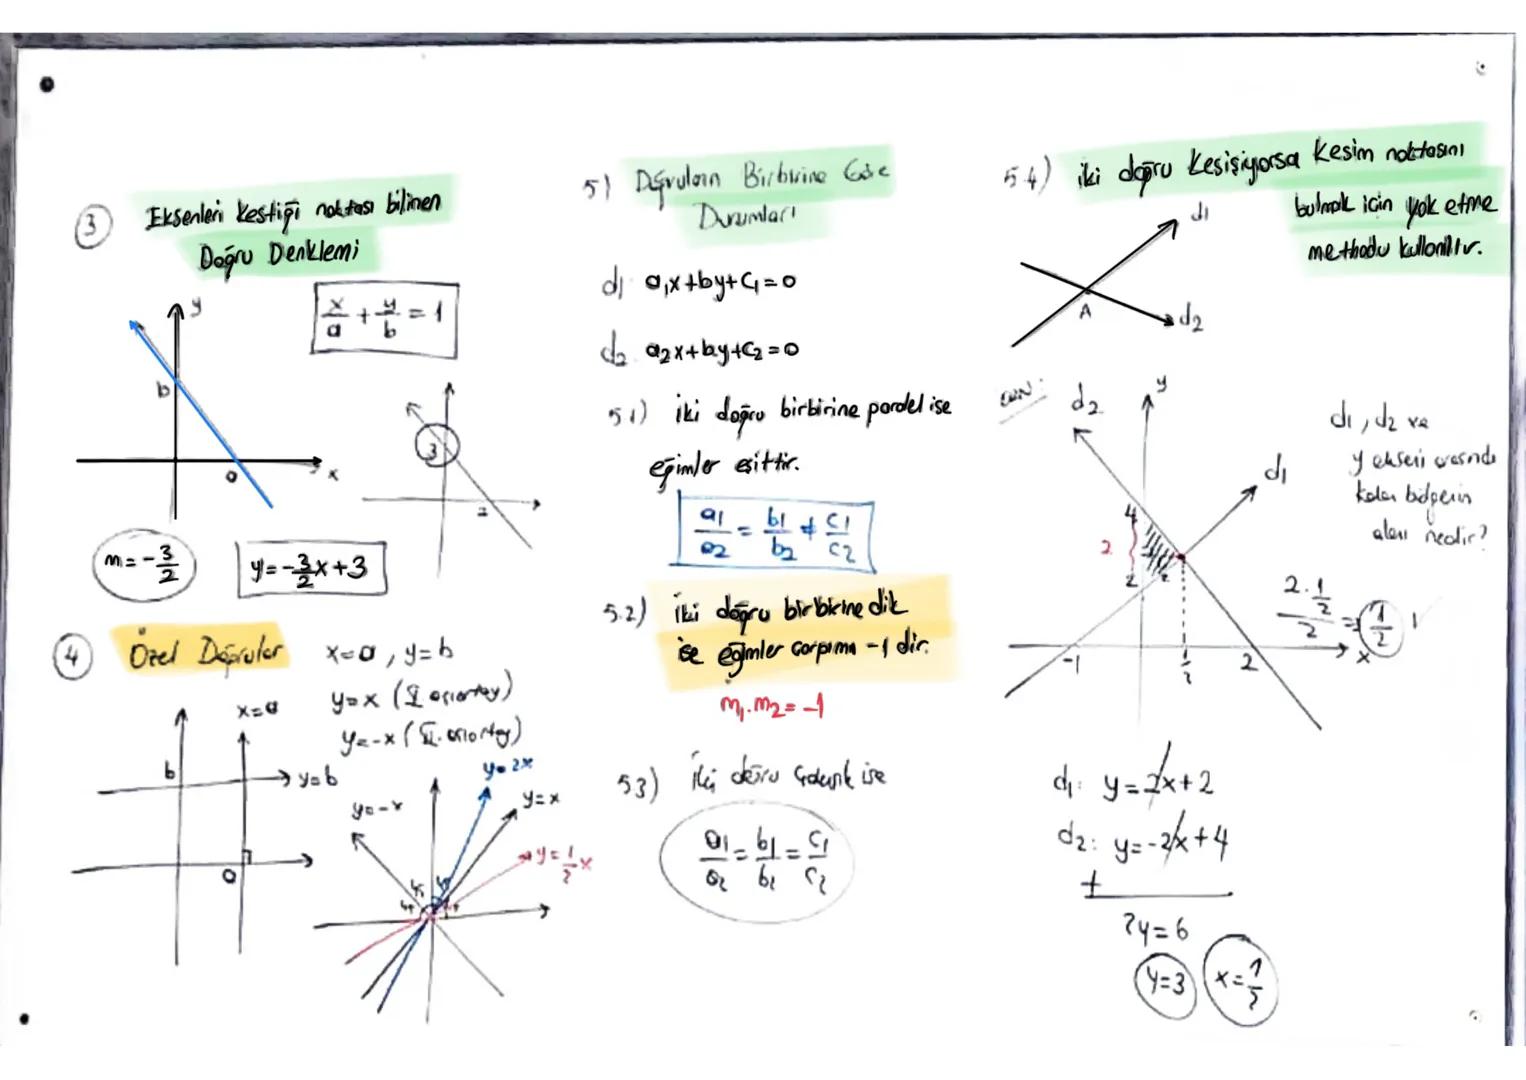 3 Eksenleri kestiği noktası bilinen
Doğru Denklemi
x/a + y/b = 1
y
b
a
x
3
2
m = -3/2
y = -3/2 x + 3
4 Özel Doğrular
x=a, y=b
y=x (I. açıortay)
y=-x (II. açıortay)
x=a
b
y=b
a
y=-x
y=2x
y=x
y=1/2 x
45
45
5) Doğruların Birbirine Göre
Durumları
d1: a1x+b1y+c1=0
d2: a2x+b2y+c2=0
5.1) iki doğru birbirine paralel ise
eğimler eşittir.
a1/a2 = b1/b2 ≠ c1/c2
5.2) iki doğru birbirine dik
ise eğimler çarpımı -1 dir.
m1.m2=-1
5.3) İki doğru çakışık ise
a1/a2 = b1/b2 = c1/c2
5.4) iki doğru kesişiyorsa kesim noktasını
bulmak için yok etme
methodu kullanılır.
d1
A
d2
ÖRN:
d2
y
d1
4
2
2
-1
1/2
2
x
d1, d2 ve
y ekseni arasında
kalan bölgenin
alanı nedir?
2.1/2 / 2 = 1/2
d1: y=2x+2
d2: y=-2x+4
+
2y=6
y=3
x=1/2